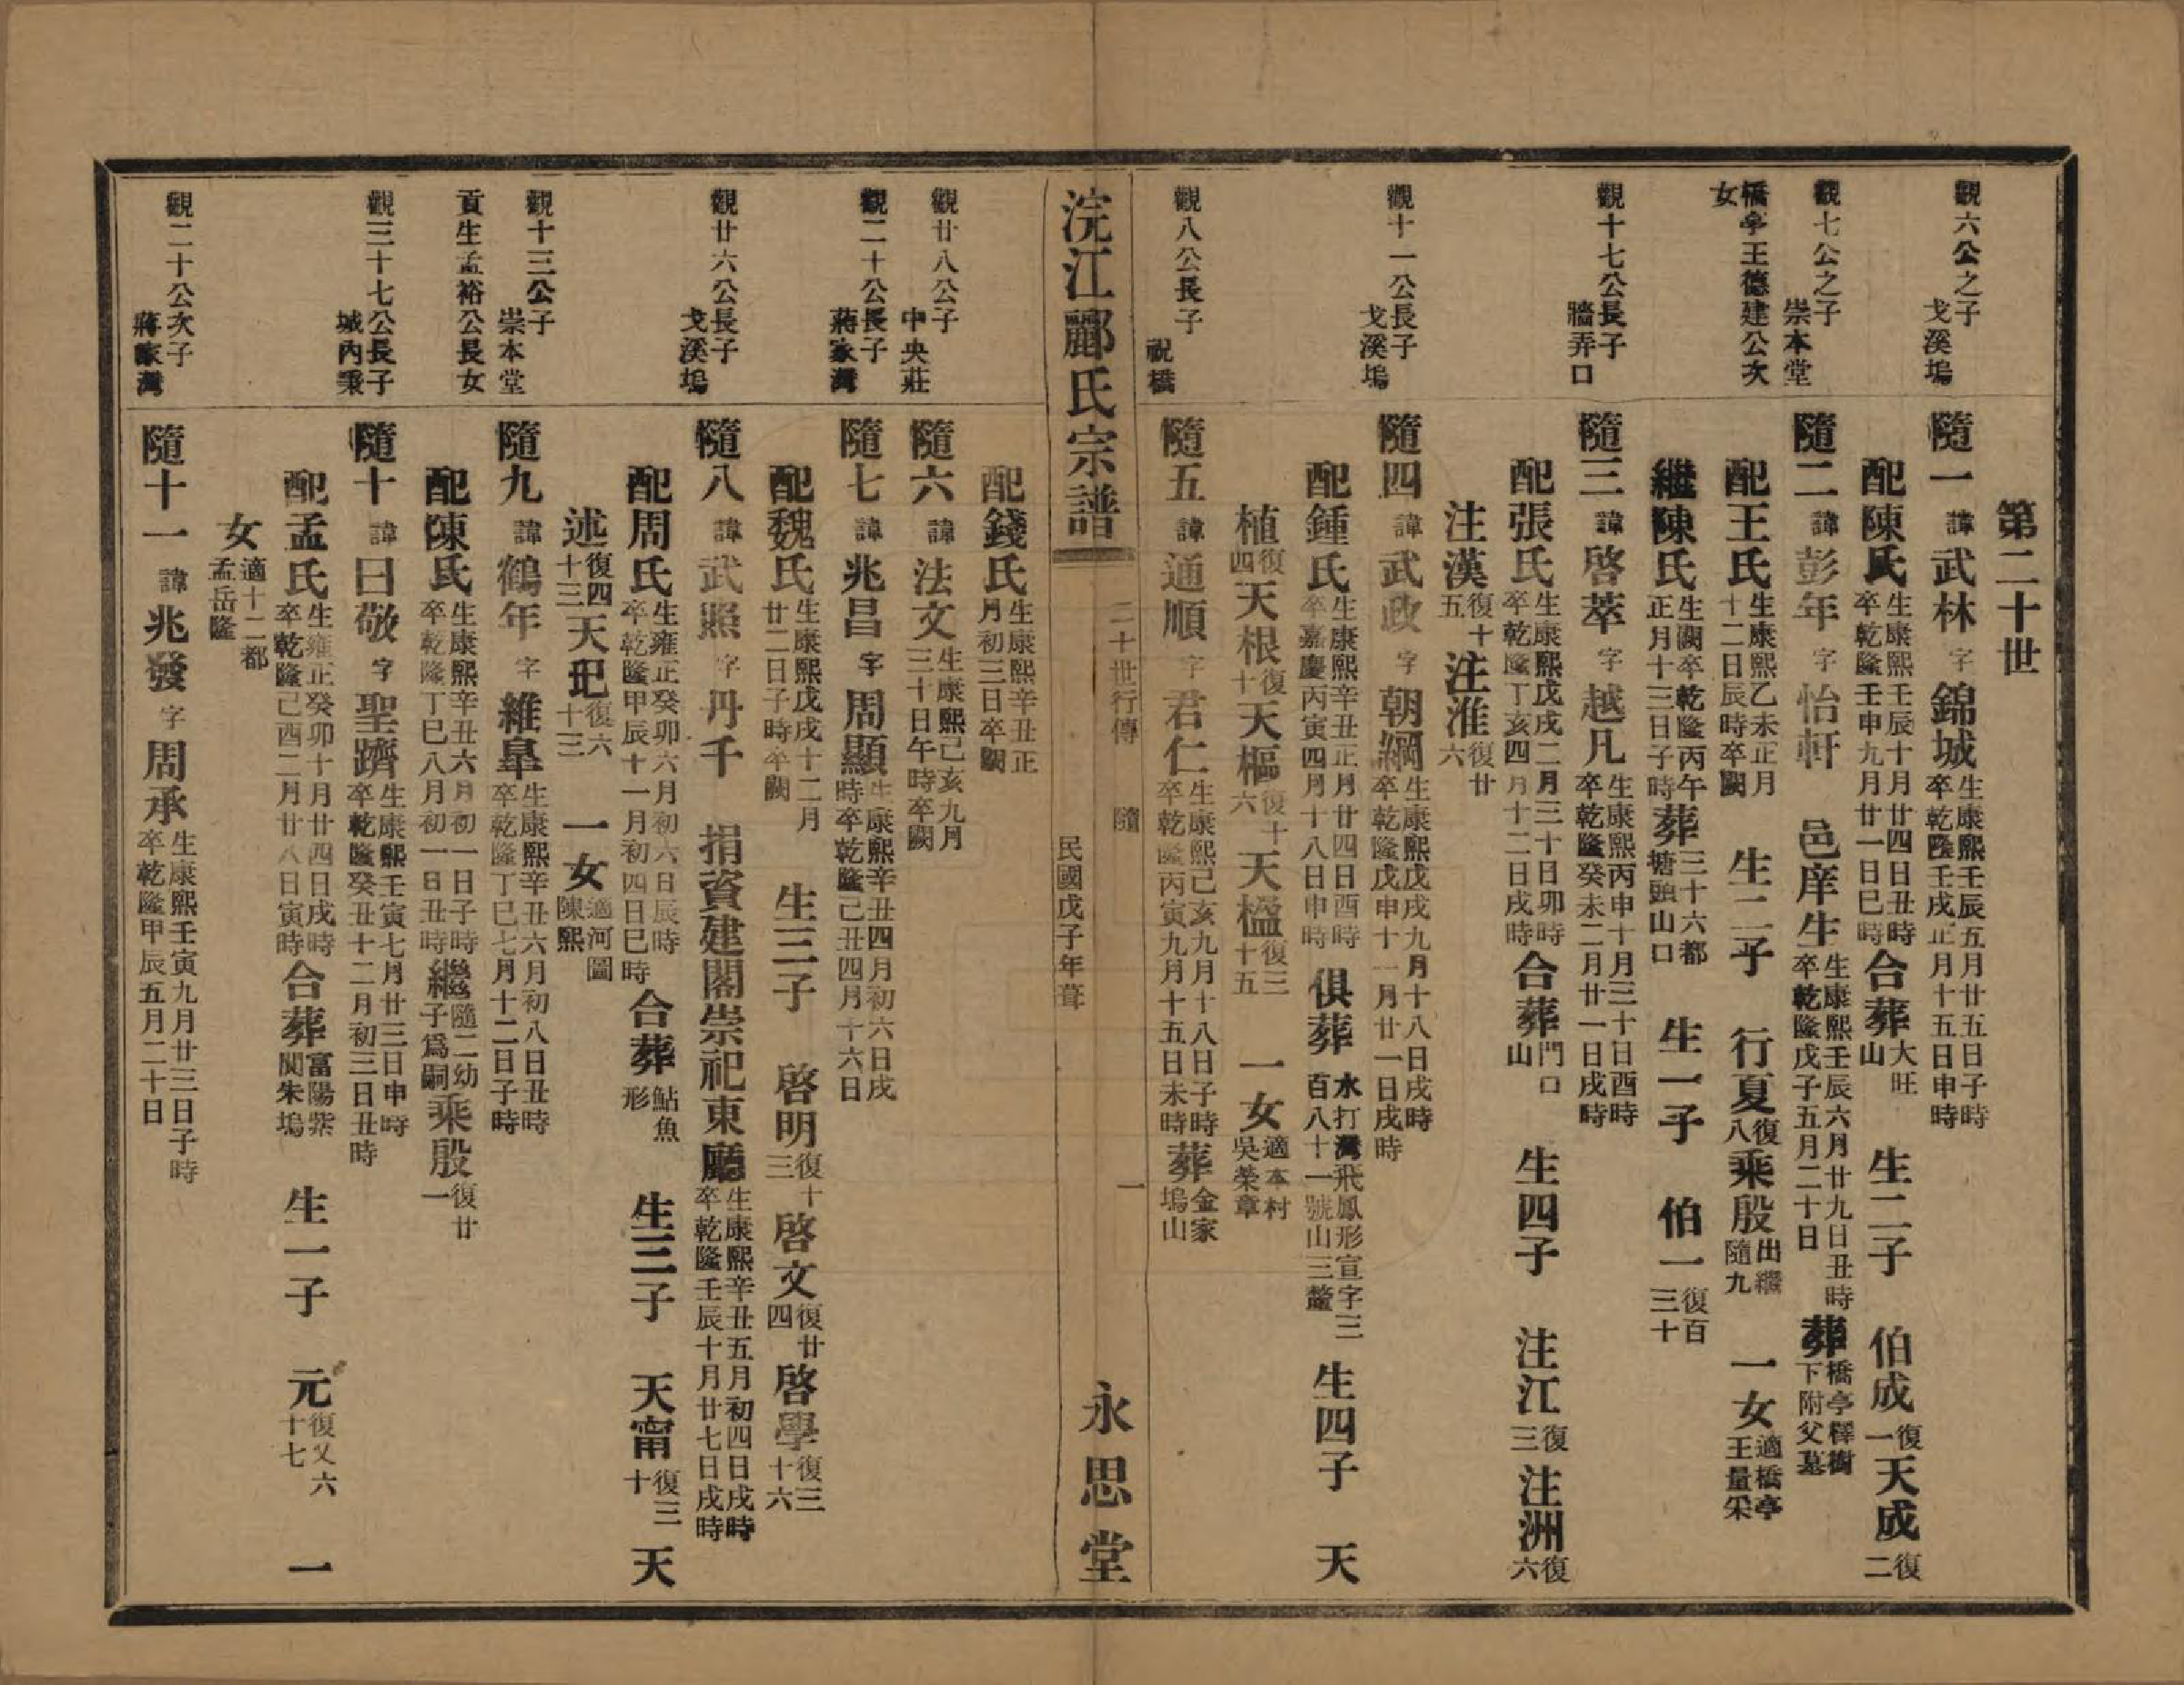 第二十世
觀六公之子
戈溪塢
隨一諱武林字錦城生康熙壬辰五月廿五日子時
卒乾隆壬戌正月十五日申時
配陳氏生康熙壬辰十月廿四日丑時
卒乾隆壬申九月廿一日巳時合葬大旺
山 生二子 伯成復
一天成復
二
觀七公之子
崇本堂
隨二諱彭年字怡軒 邑庠生生康熙壬辰六月廿九日丑時
卒乾隆戊子五月二十日 葬橋亭釋樹
下附父墓
橋亭王德建公次
女
配王氏生康熙乙未正月
十二日辰時卒闕 生二子 行夏復
八乘殷出繼
隨九 一女適橋亭
王量寀
繼陳氏生闕卒乾隆丙午
正月十三日子時葬三十六都
塘頭山口 生一子 伯一復百
三十
觀十七公長子
牆弄口
隨三諱啓萃字越凡生康熙丙申十月三十日酉時
卒乾隆癸未二月廿一日戌時
配張氏生康熙戊戌二月三十日卯時
卒乾隆丁亥四月十二日戌時合葬門口
山 生四子 注江復
三注洲復
六
注漢復十
五注淮復廿
六
觀十一公長子
戈溪塢
隨四諱武政字朝綱生康熙戊戌九月十八日戌時
卒乾隆戊申十一月廿一日戌時
配鍾氏生康熙辛丑正月廿四日酉時
卒嘉慶丙寅四月十八日申時 俱葬水打灣飛鳳形宣字三
百八十一號山三釐 生四子 天
植復
四天根復
十天樞復十
六天楹復三
十五 一女適本村
吳榮章
觀八公長子
祝橋
隨五諱通順字君仁生康熙己亥九月十八日子時
卒乾隆丙寅九月十五日未時葬金家
塢山
浣江酈氏宗譜
二十世行傳 隨 一
民國戊子年葺
永思堂
配錢氏生康熙辛丑正
月初三日卒闕
觀廿八公子
中央莊
隨六諱法文生康熙己亥九月
三十日午時卒闕
觀二十公長子
蔣家灣
隨七諱兆昌字周顯生康熙辛丑四月初六日戌
時卒乾隆己丑四月十六日
配魏氏生康熙戊戌十二月
廿二日子時卒闕 生三子 啓明復十
三啓文復廿
四啓學復三
十六
觀廿六公長子
戈溪塢
隨八諱武照字丹千 捐資建閣崇祀東廳生康熙辛丑五月初四日戌時
卒乾隆壬辰十月廿七日戌時
配周氏生雍正癸卯六月初六日辰時
卒乾隆甲辰十一月初四日巳時 合葬鮎魚
形 生三子 天甯復三
十 天
述復四
十三天玘復六
十三 一女適河圖
陳熙
觀十三公子
崇本堂
隨九諱鶴年字維皐生康熙辛丑六月初八日丑時
卒乾隆丁巳七月十二日子時
貢生孟裕公長女
配陳氏生康熙辛丑六月初一日子時
卒乾隆丁巳八月初一日丑時繼隨二幼
子爲嗣乘殷復廿
一
觀三十七公長子
城內秉
隨十諱曰敬字聖躋生康熙壬寅七月廿三日申時
卒乾隆癸丑十二月初三日丑時
配孟氏生雍正癸卯十月廿四日戌時
卒乾隆己酉二月廿八日寅時合葬富陽紫
閬朱塢 生一子 元復又六
十七 一
女適十二都
孟岳隆
觀二十公次子
蔣家灣
隨十一諱兆發字周承生康熙壬寅九月廿三日子時
卒乾隆甲辰五月二十日